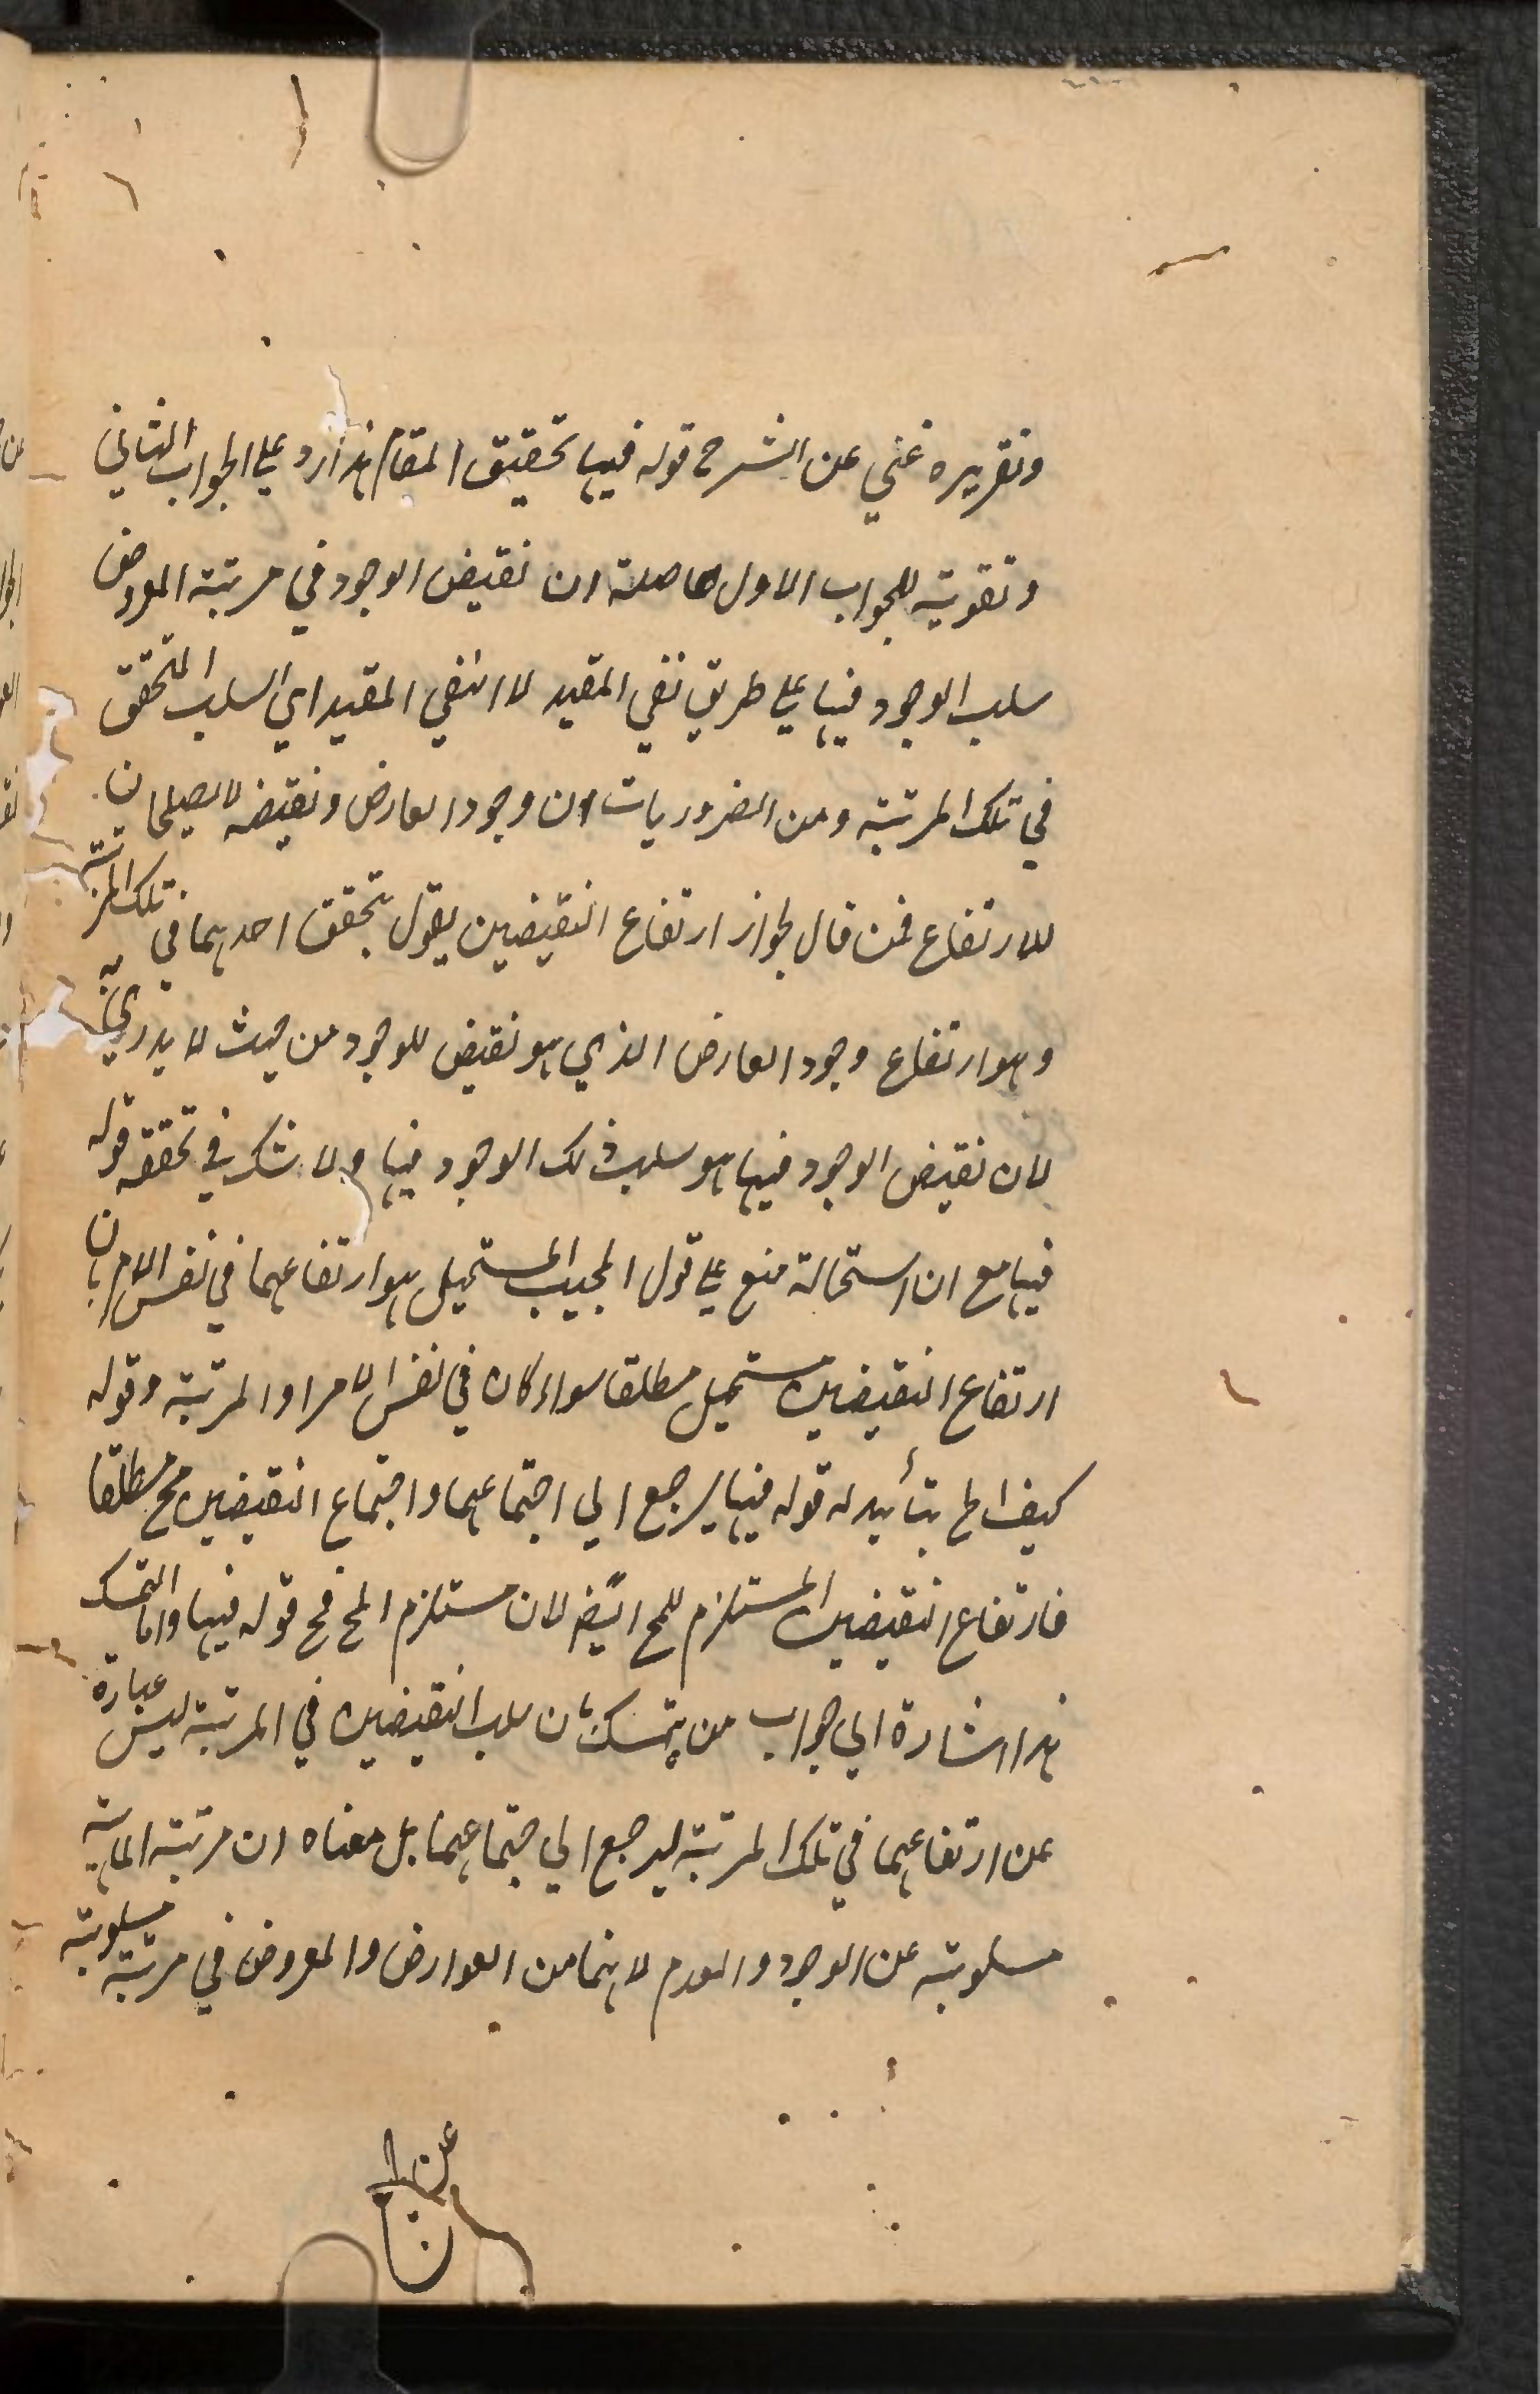 وتقريره غني عن الشرح قوله فيها تحقيق المقام هذا رد على الجواب الثاني
وتقوية للجواب الاول حاصله ان نقيض الوجود في مرتبة المعروض
سلب الوجود فيها على طريق نفي المقيد لا النفي المقيد اي السلب المتحقق
في تلك المرتبة ومن الضروريات ان وجود العارض ونقيضه لا يصلحان
للارتفاع فمن قال بجواز ارتفاع النقيضين يقول بتحقق احدهما في تلك المرتبة
وهو ارتفاع وجود العارض الذي هو نقيض للوجود من حيث لا يدري به
لان نقيض الوجود فيها هو سلب ذلك الوجود فيها ولا شك في تحققه قوله
فيها مع ان استحالة منع على قول المجيب المستحيل هو ارتفاعهما في نفس الامر بان
ارتفاع النقيضين مستحيل مطلقا سواء كان في نفس الامر او المرتبة وقوله
كيف الخ بتأييد له قوله فيها يرجع الي اجتماعهما واجتماع النقيضين مح مطلقا
فارتفاع النقيضين المستلزم للمح ايضً لان مستلزم المح مح قوله فيها واما التمسك
هذا اشارة الي جواب من يتمسك بان سلب النقيضين في المرتبة ليس عبارة
عن ارتفاعهما في تلك المرتبة ليرجع الي اجتماعهما بل معناه ان مرتبة الماهية
مسلوبة عن الوجود والعدم لانهما من العوارض والمعروض في مرتبة مسلوبة
عن